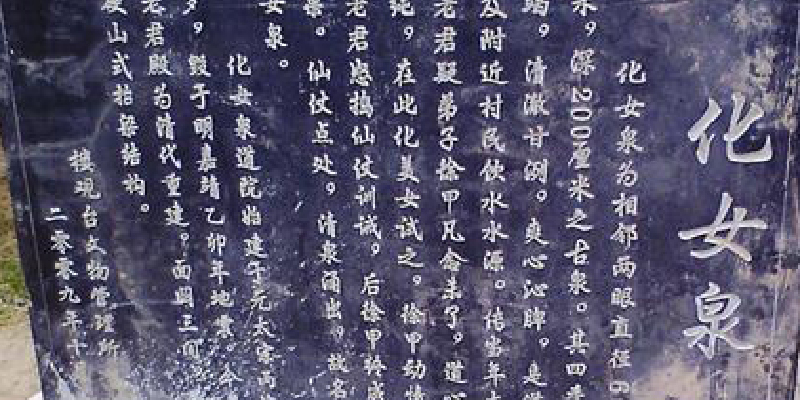 化女泉
化女泉为相邻两眼直径6
米，深200厘米之古泉。其四季
竭。清澈甘冽。爽心沁脾。是
及附近村民饮水水源。传当年
老君疑弟子徐甲凡念未了。道心
纯。在此化美女试之。徐甲动情
老君怒捣仙仗训诫。后徐甲
仙仗点处，清泉涌出，故名
女泉。
化女泉道院始建于元太
毁于明嘉靖乙卯年地震。今
老君殿为清代重建。面阔三间
山式抬梁结构。
楼观台文物管理所
二零零九年十